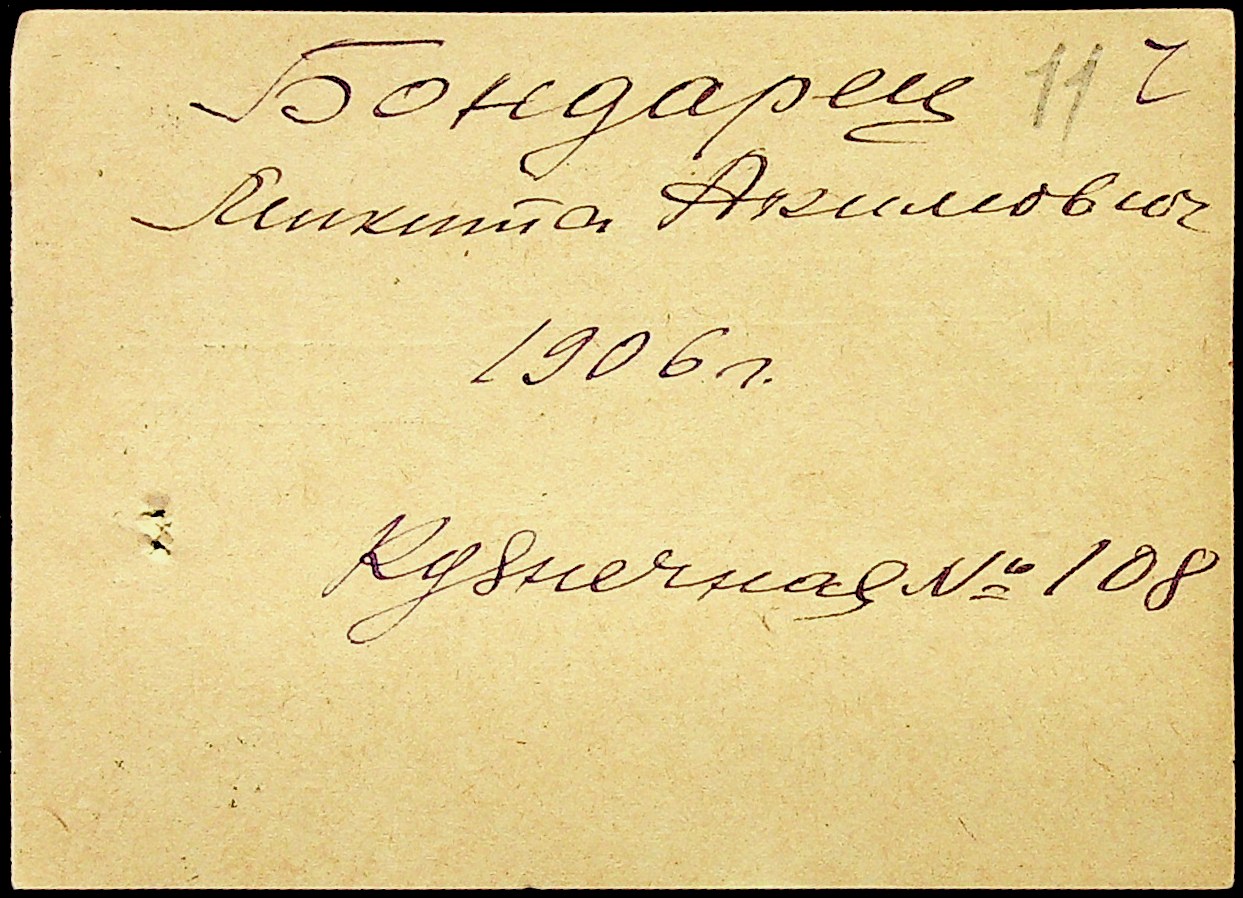 Бондарец 11 ч
Микита Акимович
1906 г.
Кузнечная № 108